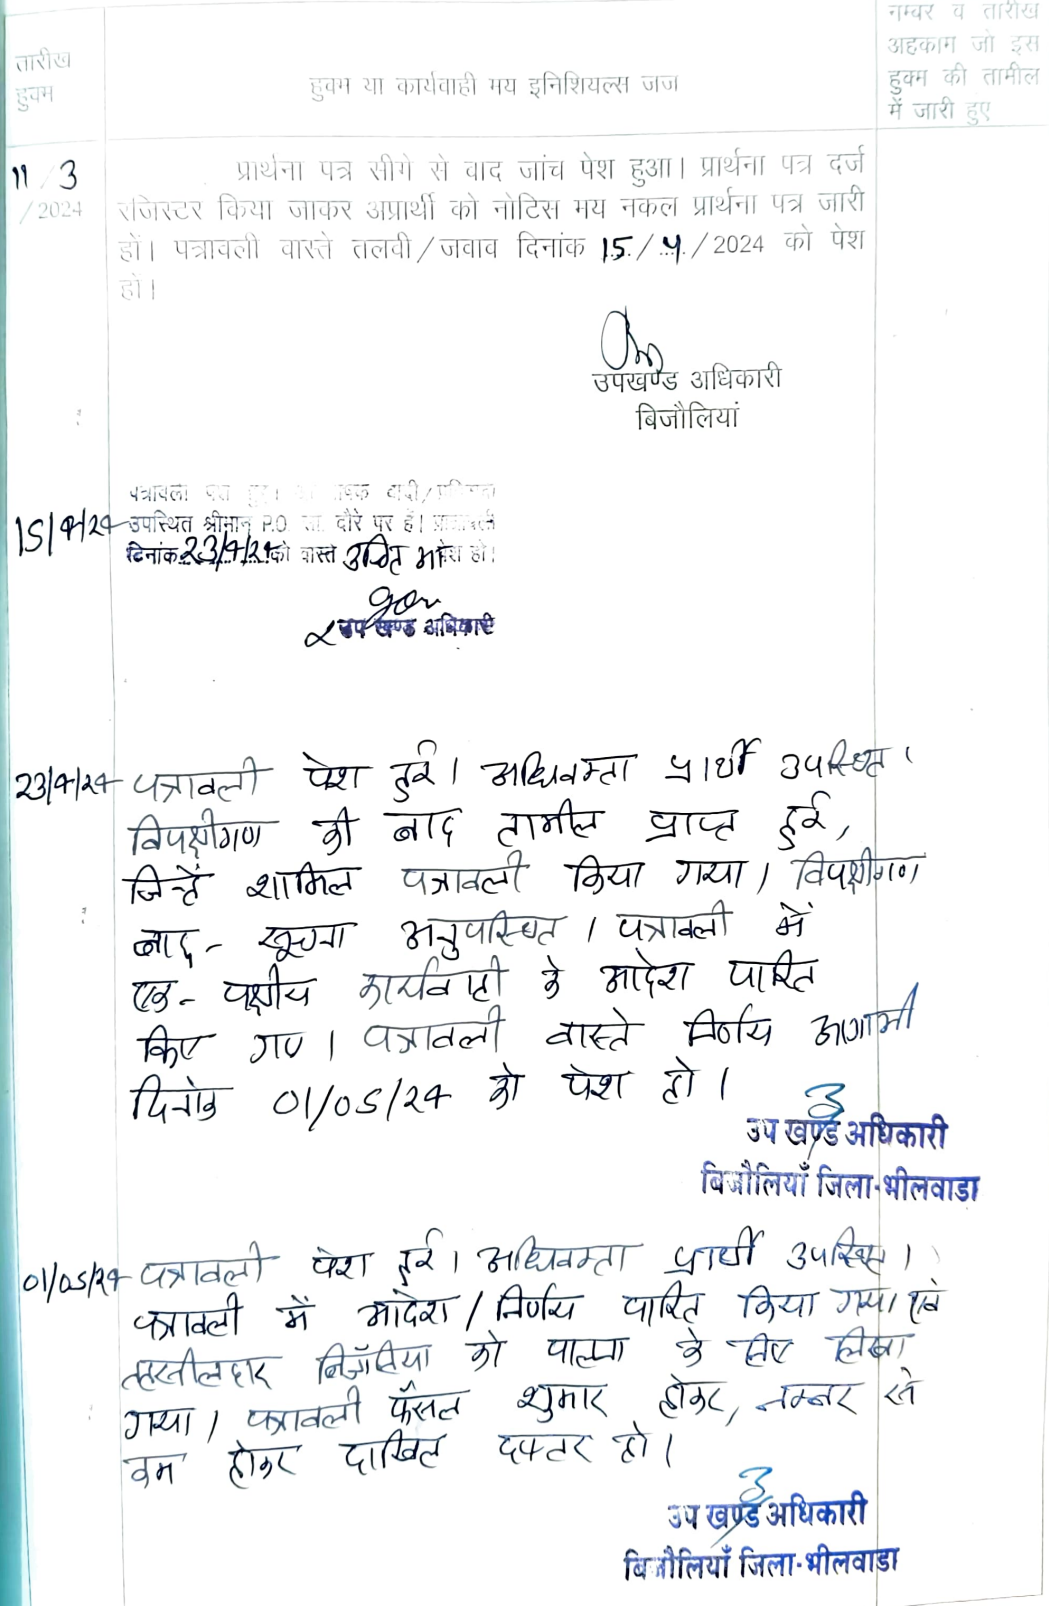 नम्बर व तारीख
अहकाम जो इस
हुक्म की तामील
में जारी हुए
तारीख
हुक्म
हुक्म या कार्यवाही मय इनिशियल्स जज
11/3
/2024
प्रार्थना पत्र सीगे से वाद जांच पेश हुआ। प्रार्थना पत्र दर्ज
रजिस्टर किया जाकर अप्रार्थी को नोटिस मय नकल प्रार्थना पत्र जारी
हों। पत्रावली वास्ते तलवी/जवाव दिनांक 15/4/2024 को पेश
हो।
उपखण्ड अधिकारी
बिजौलियां
15/4/24
पत्रावली पेश हुई। वादी/
उपस्थित श्रीमान् P.O. सा. दौरे पर हैं। पत्रावली
दिनांक 23/4/24 को वास्ते उचित पेश हो।
उप खण्ड अधिकारी
23/4/24 पत्रावली पेश हुई। अधिवक्ता प्रार्थी उपस्थित।
विपक्षीगण की बाद तामील प्राप्त हुई,
जिन्हें शामिल पत्रावली किया गया। विपक्षीगण
बाद - सूचना अनुपस्थित। पत्रावली में
एक - पक्षीय कार्यवाही के आदेश पारित
किए गए। पत्रावली वास्ते निर्णय आगामी
दिनांक 01/05/24 को पेश हो।
उप खण्ड अधिकारी
बिजौलियाँ जिला-भीलवाडा
01/05/24 पत्रावली पेश हुई। अधिवक्ता प्रार्थी उपस्थित।
पत्रावली में आदेश/निर्णय पारित किया गया एवं
तहसीलदार बिजौलिया को पालना के लिए लिखा
गया। पत्रावली फैसल शुमार होकर, नम्बर से
कम होकर दाखिल दफ्तर हो।
उप खण्ड अधिकारी
बिजौलियाँ जिला-भीलवाडा